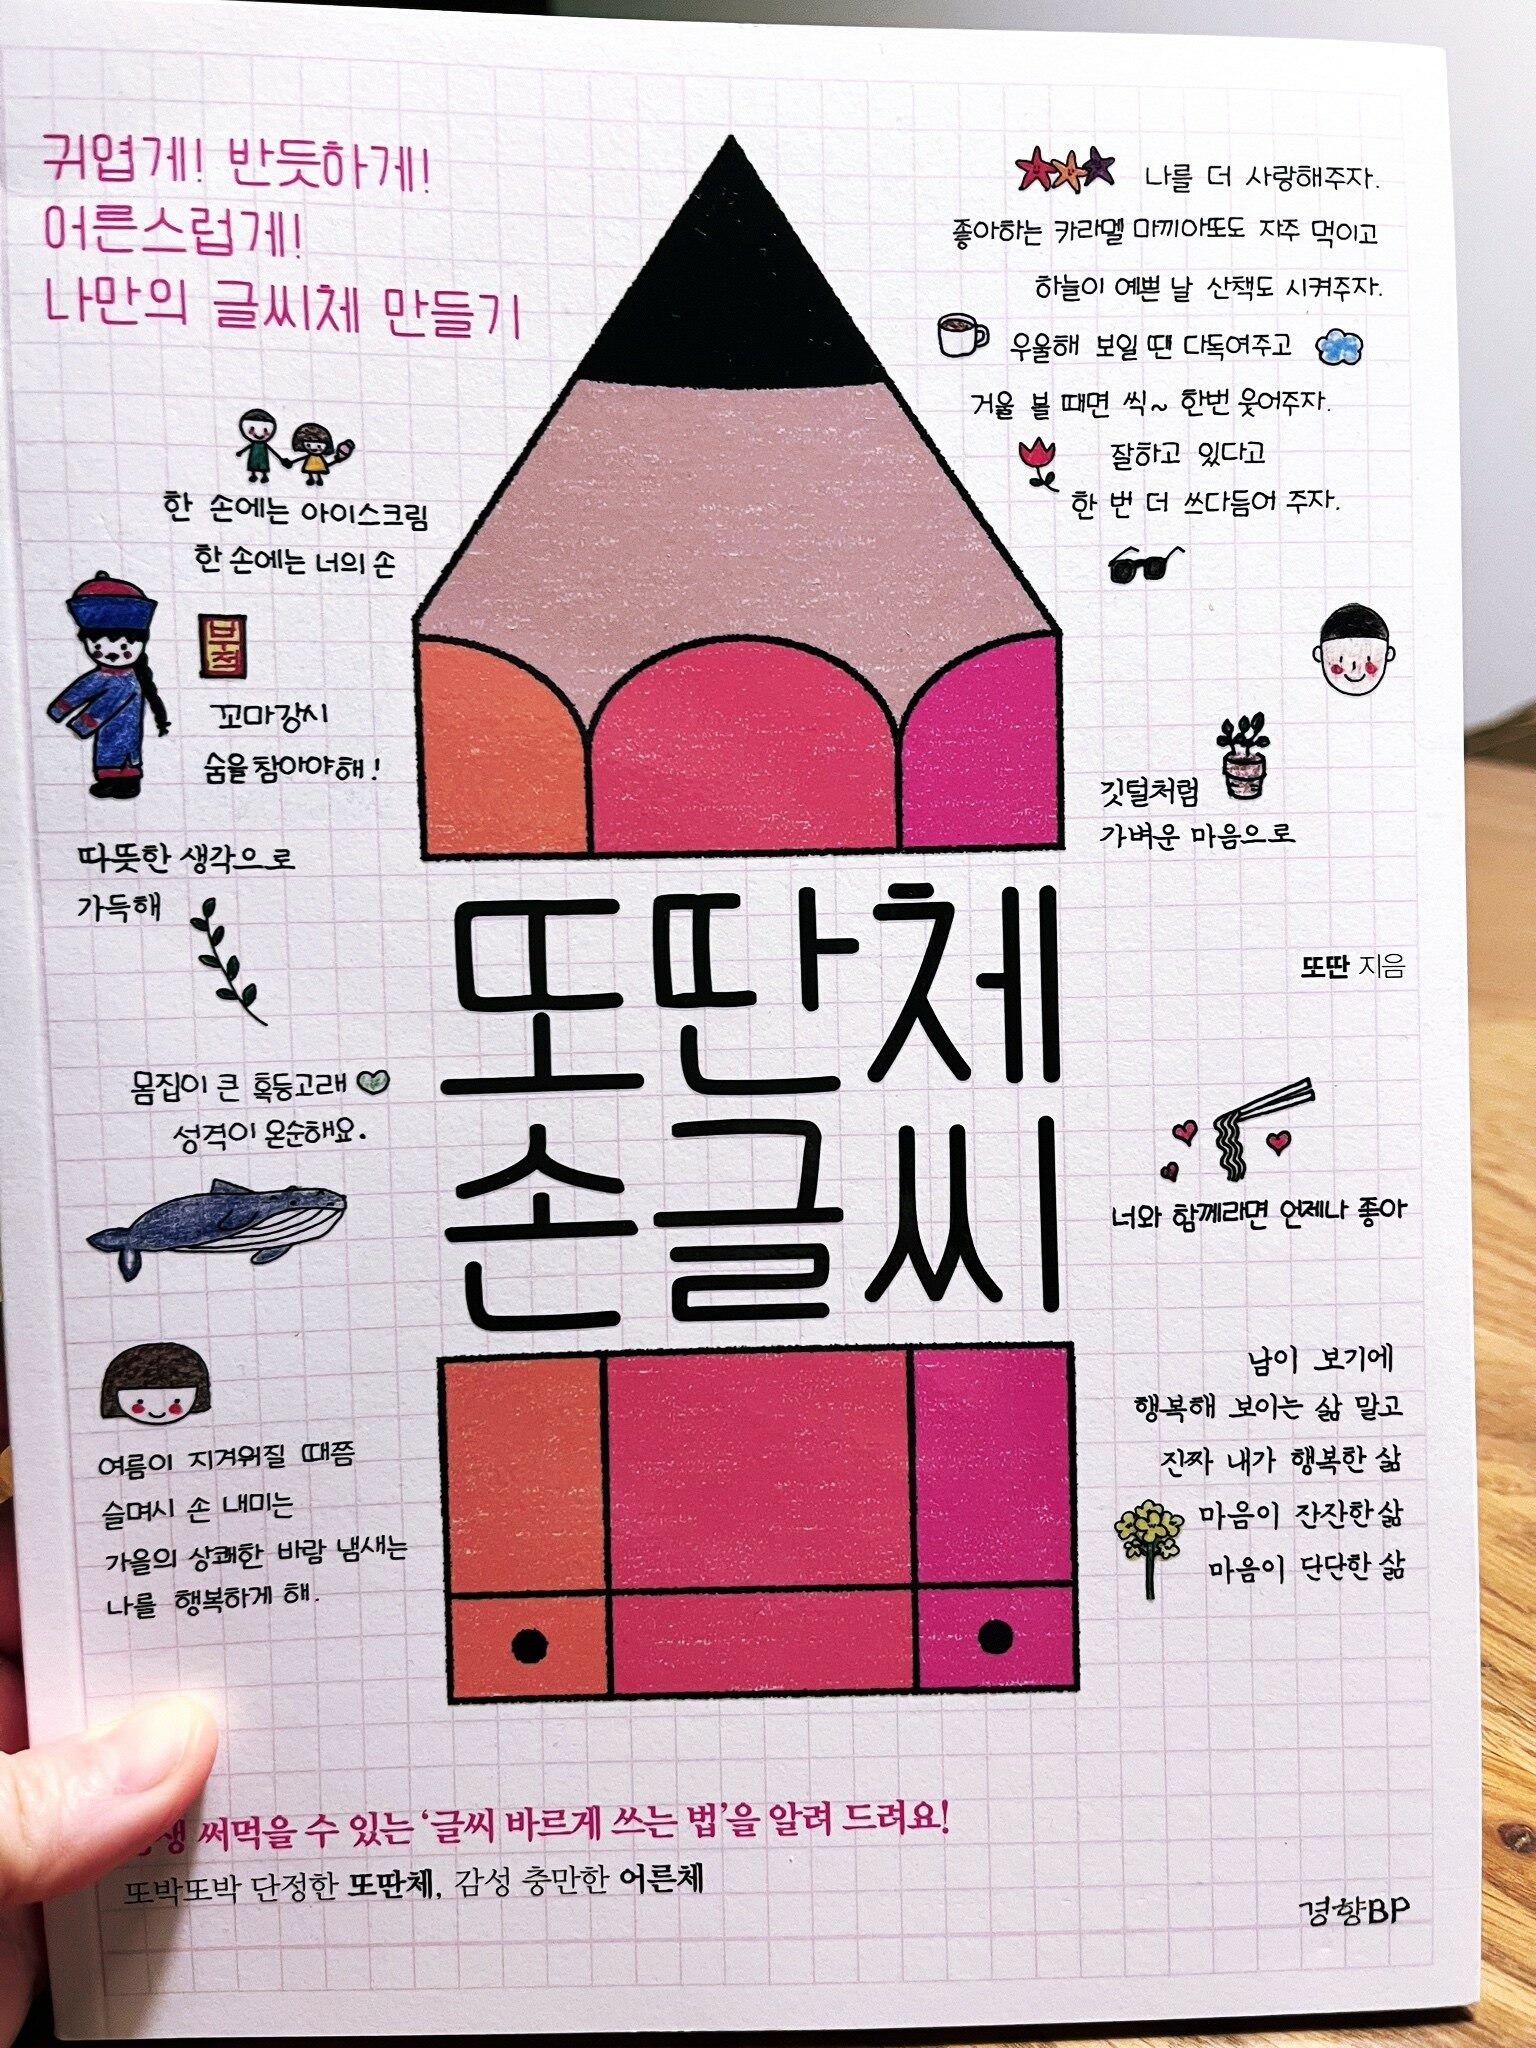 귀엽게! 반듯하게!
어른스럽게!
나만의 글씨체 만들기
나를 더 사랑해주자.
좋아하는 카라멜 마끼아또도 자주 먹이고
하늘이 예쁜 날 산책도 시켜주자.
우울해 보일 땐 다독여주고
거울 볼 때면 씩~ 한번 웃어주자.
잘하고 있다고
한 번 더 쓰다듬어 주자.
한 손에는 아이스크림
한 손에는 너의 손
부적
꼬마강시
숨을 참아야해!
깃털처럼
가벼운 마음으로
따뜻한 생각으로
가득해
또딴체
손글씨
또딴 지음
몸집이 큰 혹등고래
성격이 온순해요.
너와 함께라면 언제나 좋아
여름이 지겨워질 때쯤
슬며시 손 내미는
가을의 상쾌한 바람 냄새는
나를 행복하게 해.
남이 보기에
행복해 보이는 삶 말고
진짜 내가 행복한 삶
마음이 잔잔한 삶
마음이 단단한 삶
써먹을 수 있는 ‘글씨 바르게 쓰는 법’을 알려 드려요!
또박또박 단정한 또딴체, 감성 충만한 어른체
경향BP